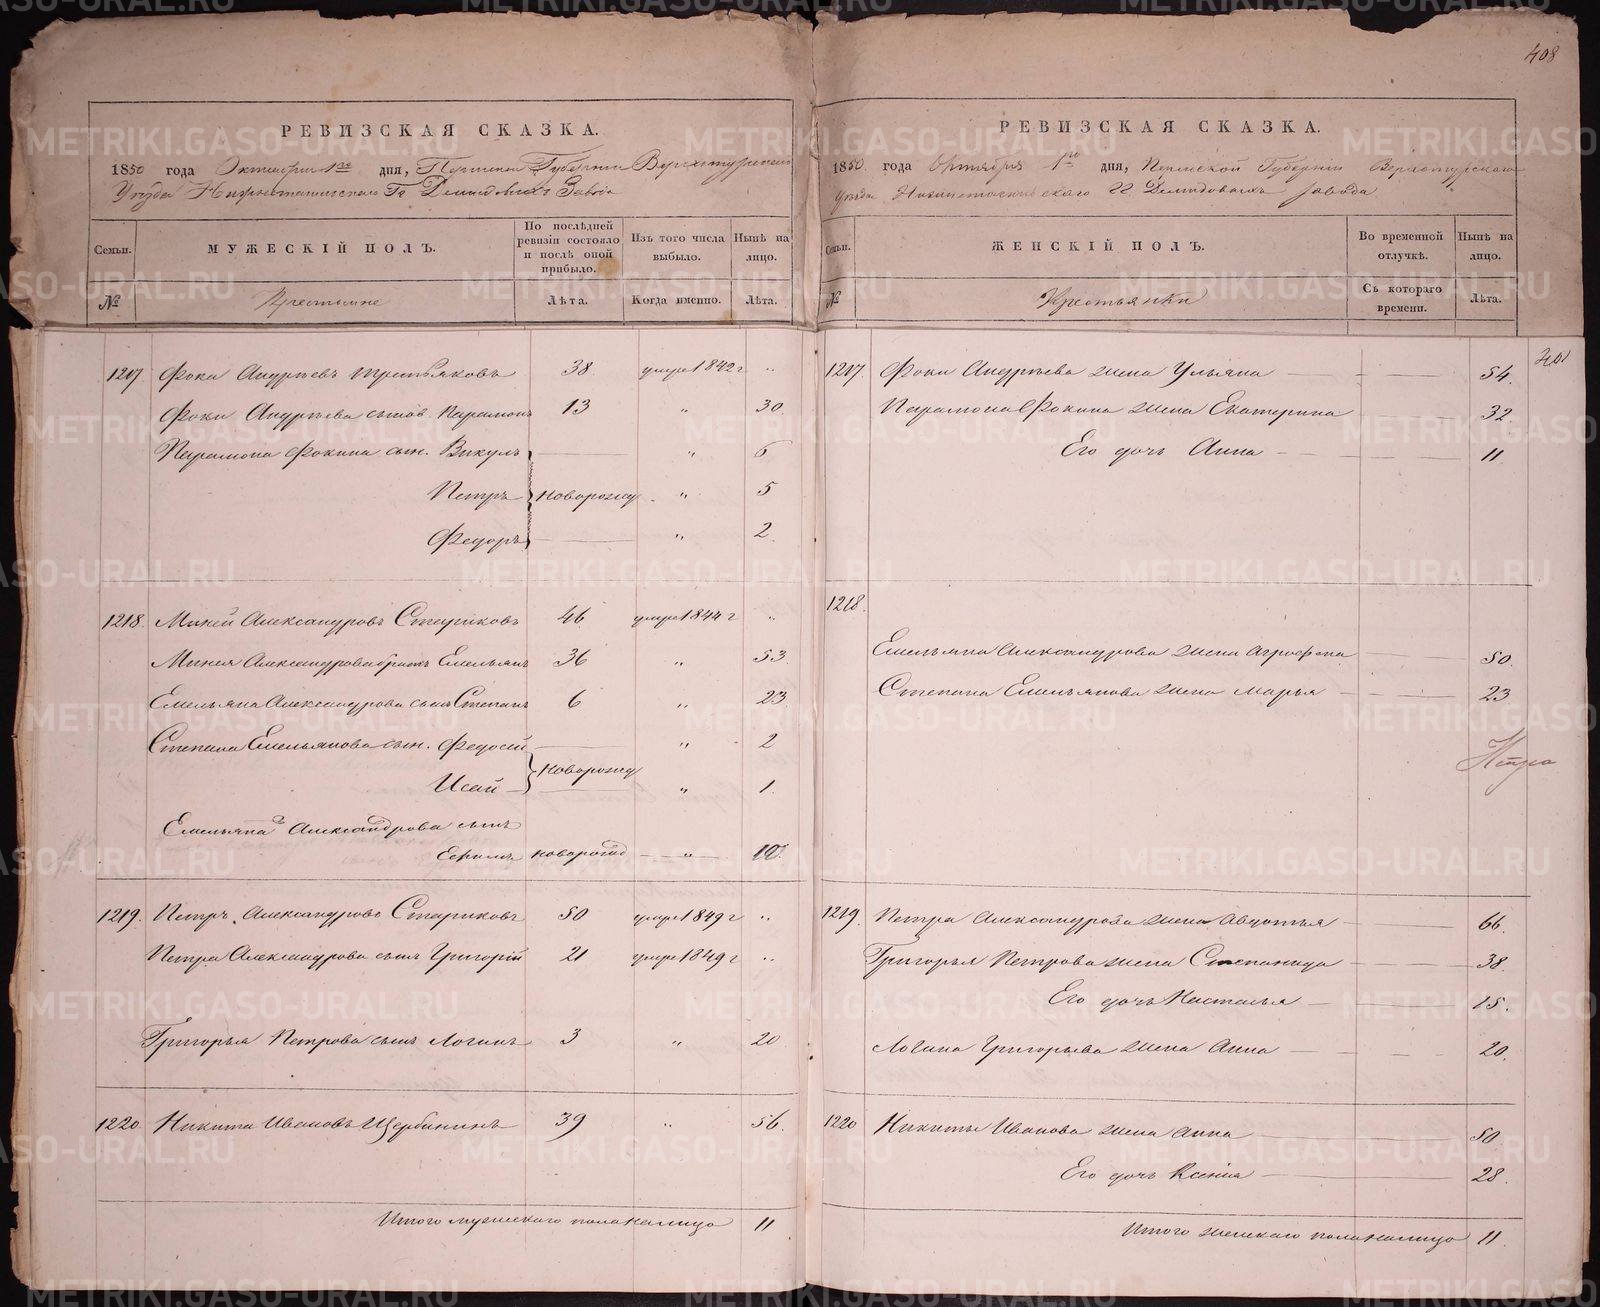 408
РЕВИЗСКАЯ СКАЗКА.
1850 года Октября 1го дня, Пермской Губернии Верхотурскаго
Уезда Нижнетагильскаго Гг Демидовыхъ Завода
Семьи.
МУЖЕСКІЙ ПОЛЪ.
По послѣдней ревизіи состояло и послѣ оной прибыло.
Изъ того числа выбыло.
Нынѣ на лицо.
№
Крестьяне
Лѣта.
Когда именно.
Лѣта.
1217 Фока Андреевъ Третьяковъ 38 умре 1842 г "
Фоки Андреева сынъ Парамонъ 13 " 30
Парамона Фокина сын. Викулъ " 6
Петръ новорожд " 5
Федоръ " 2
1218. Миней Александровъ Стариковъ 46 умре 1844 г "
Минея Александрова братъ Емельянъ 36 " 53
Емельяна Александрова сынъ Степанъ 6 " 23
Степана Емельянова сын. Федосей " 2
новорожд
Исай " 1
Емельяна Александрова сынъ
Ефимъ новорожд "
1219. Петръ Александровъ Стариковъ 50 умре 1849 г "
Петра Александрова сынъ Григорій 21 умре 1849 г "
Григорья Петрова сынъ Логинъ 3 " 20
1220 Никита Ивановъ Щербининъ 39 " 56
Итого мужескаго пола налицо 11
РЕВИЗСКАЯ СКАЗКА.
1850 года Октября 1го дня, Пермской Губерніи Верхотурскаго
Уезда Нижнетагильскаго ГГ Демидовыхъ завода
Семьи.
ЖЕНСКІЙ ПОЛЪ.
Во временной отлучкѣ.
Нынѣ на лицо.
№
Крестьянки
Съ котораго времени.
Лѣта.
1217 Фоки Андреева жена Ульяна 54.
Парамона Фокина жена Екатерина 32
Его дочь Анна 11
1218.
Емельяна Александрова жена Агрофена 50
Степана Емельянова жена Марья 23
1219. Петра Александрова жена Авдотья 66
Григорья Петрова жена Степанида 38
Его дочь Наталья 15.
Логина Григорьева жена Анна 20
1220 Никиты Иванова жена Анна 50
Его дочь Ксенія 28
Итого женскаго пола налицо 11.
METRIKI.GASO-URAL.RU